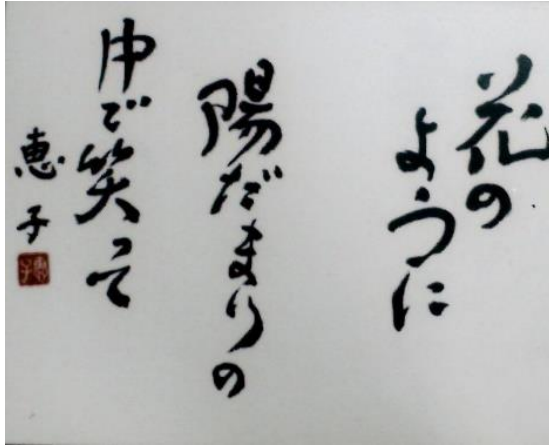 花の
ように
陽だまりの
中で笑って
恵子